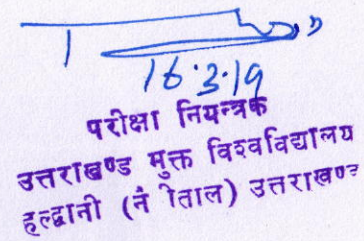 16.3.19
परीक्षा नियन्त्रक
उत्तराखण्ड मुक्त विश्वविद्यालय
हल्द्वानी (नैनीताल) उत्तराखण्ड